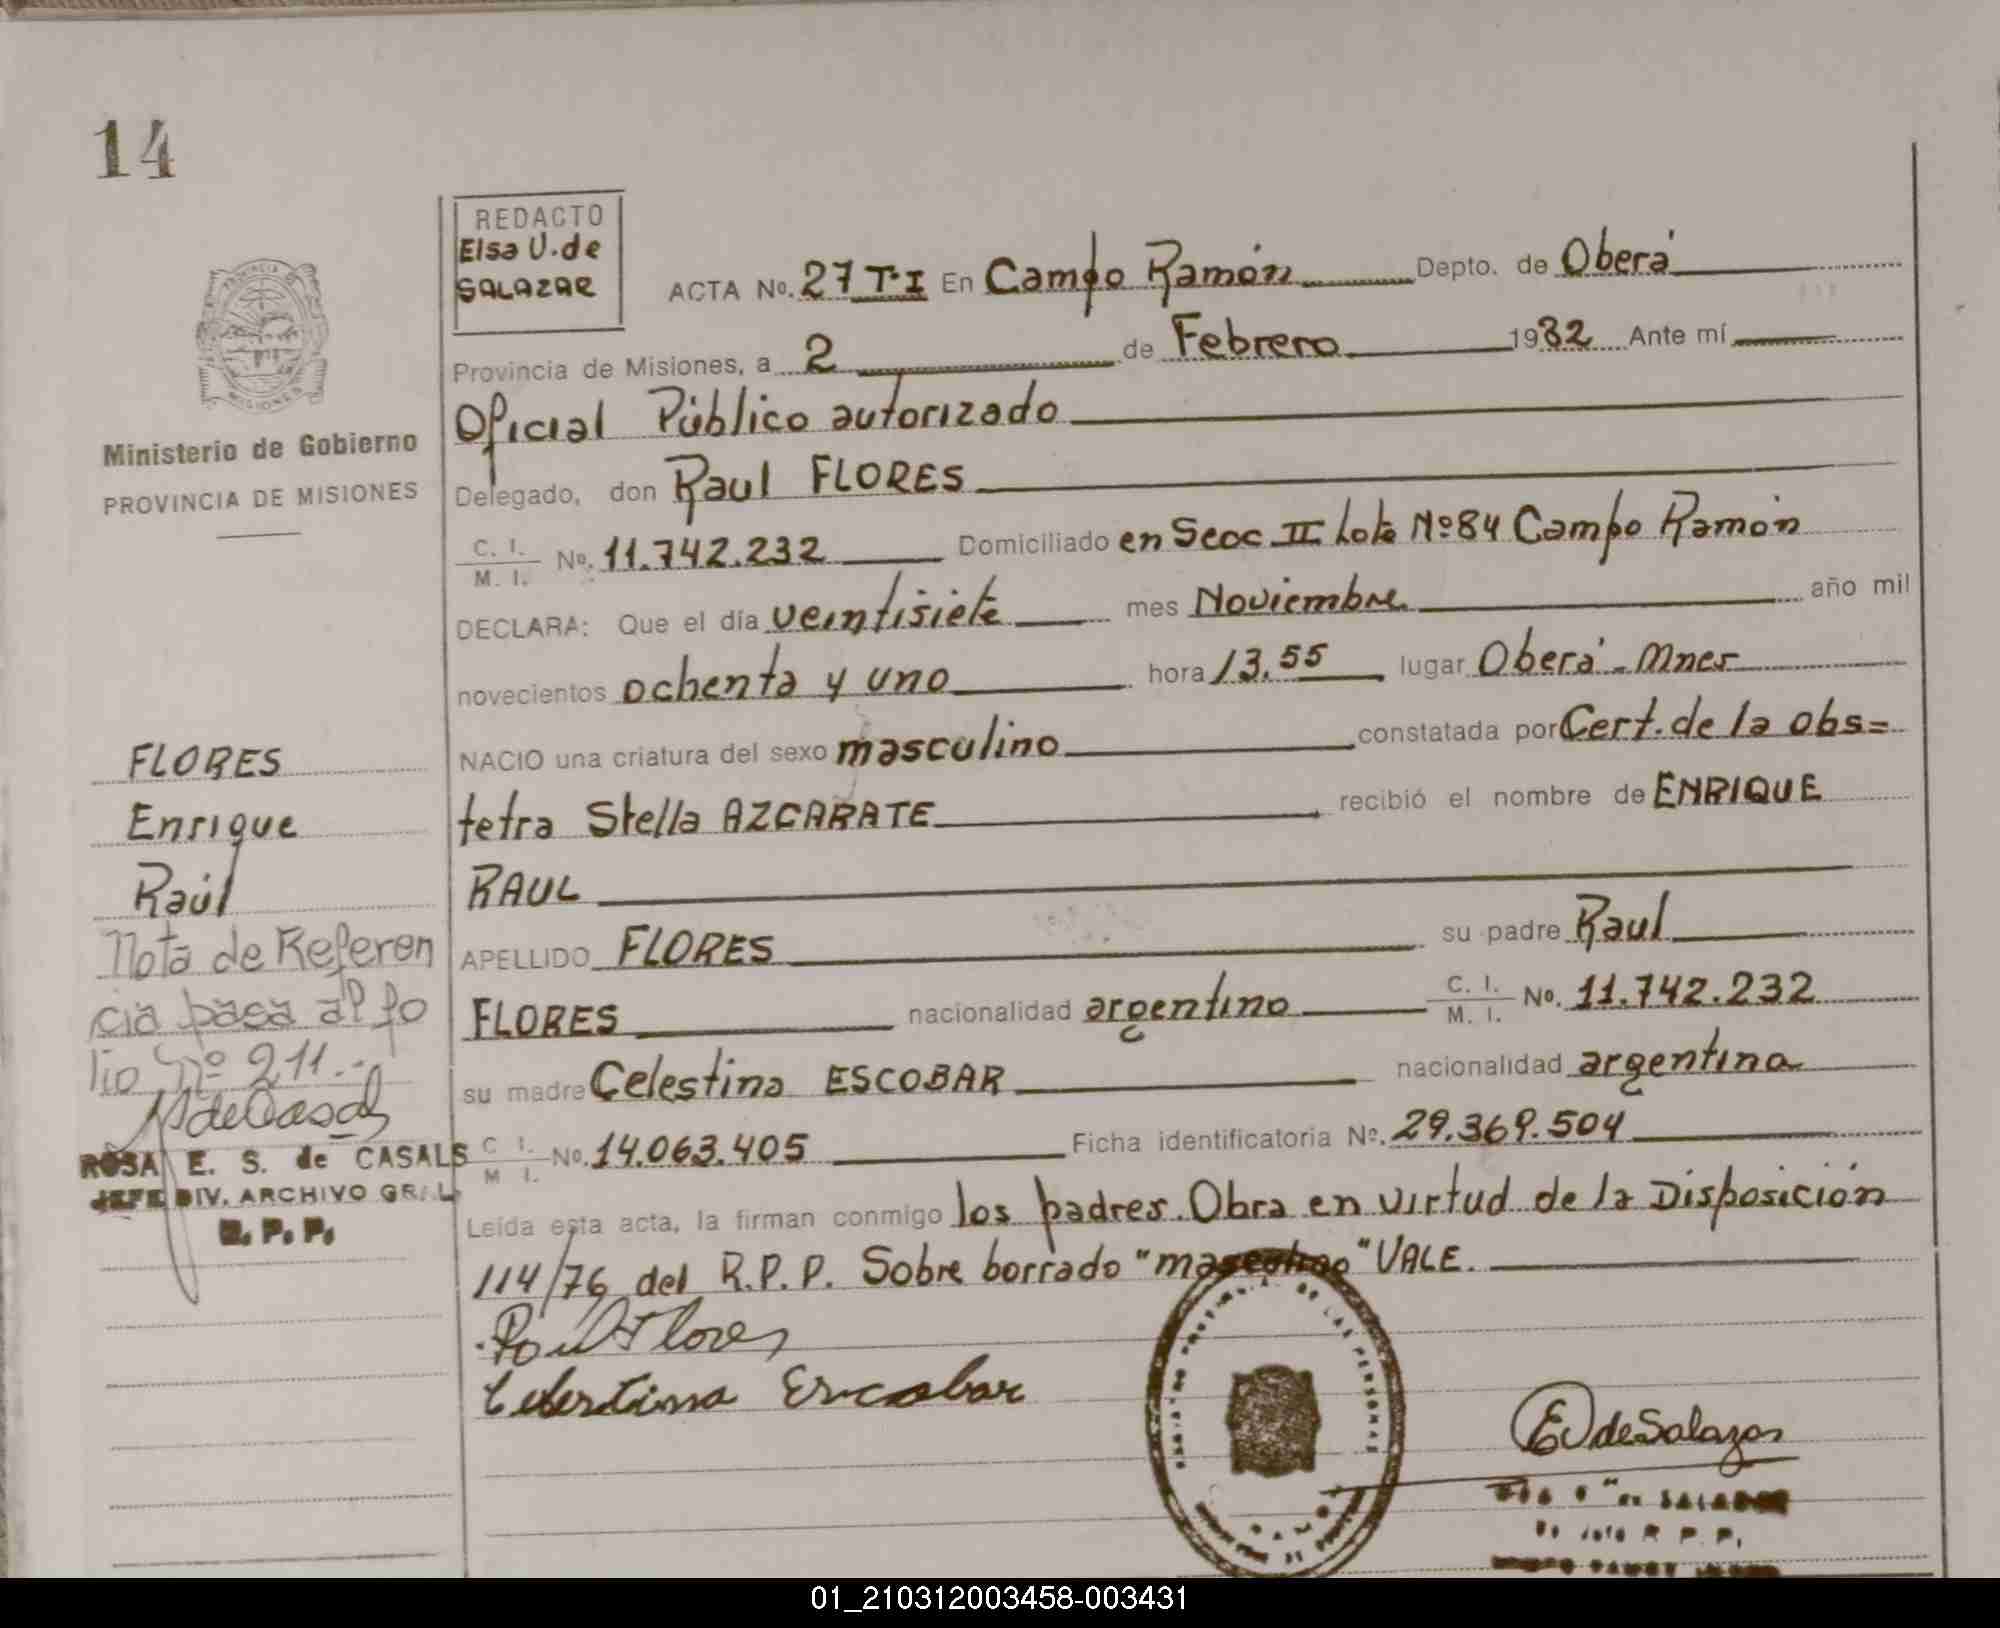 14
REDACTO
Elsa U. de
SALAZAR
ACTA No. 27 T·I En Campo Ramón Depto. de Oberá
Provincia de Misiones, a 2 de Febrero 1982 Ante mí
Oficial Público autorizado
Delegado, don Raul FLORES
C. I. / M. I. No. 11.742.232 Domiciliado en Secc II Lote Nº 84 Campo Ramón
DECLARA: Que el día veintisiete mes Noviembre año mil
novecientos ochenta y uno hora 13.55 lugar Oberá - Mnes
NACIO una criatura del sexo masculino constatada por Cert. de la obs=
tetra Stella AZCARATE recibió el nombre de ENRIQUE
RAUL
APELLIDO FLORES su padre Raul
FLORES nacionalidad argentino C. I. / M. I. No. 11.742.232
su madre Celestina ESCOBAR nacionalidad argentina
C I. / M I. No. 14.063.405 Ficha identificatoria Nº. 29.369.504
Leída esta acta, la firman conmigo los padres. Obra en virtud de la Disposición
114/76 del R.P.P. Sobre borrado "masculino" VALE.
Raul Flores
Celestina Escobar
EU de Salazar
DE SALAZAR
R. P. P.
PROVINCIA DE
MISIONES
Ministerio de Gobierno
PROVINCIA DE MISIONES
FLORES
Enrique
Raúl
Nota de Referen
cia pasa al fo
lio nº 211.-
de Casals
ROSA E. S. de CASALS
JEFE DIV. ARCHIVO GRAL
R. P. P.
DE LAS PERSONAS
01_210312003458-003431